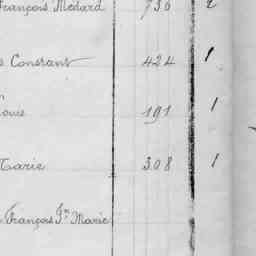 François Médard 736 2
Constant 424 1
191 1
Marie 308 1
François Jn Marie